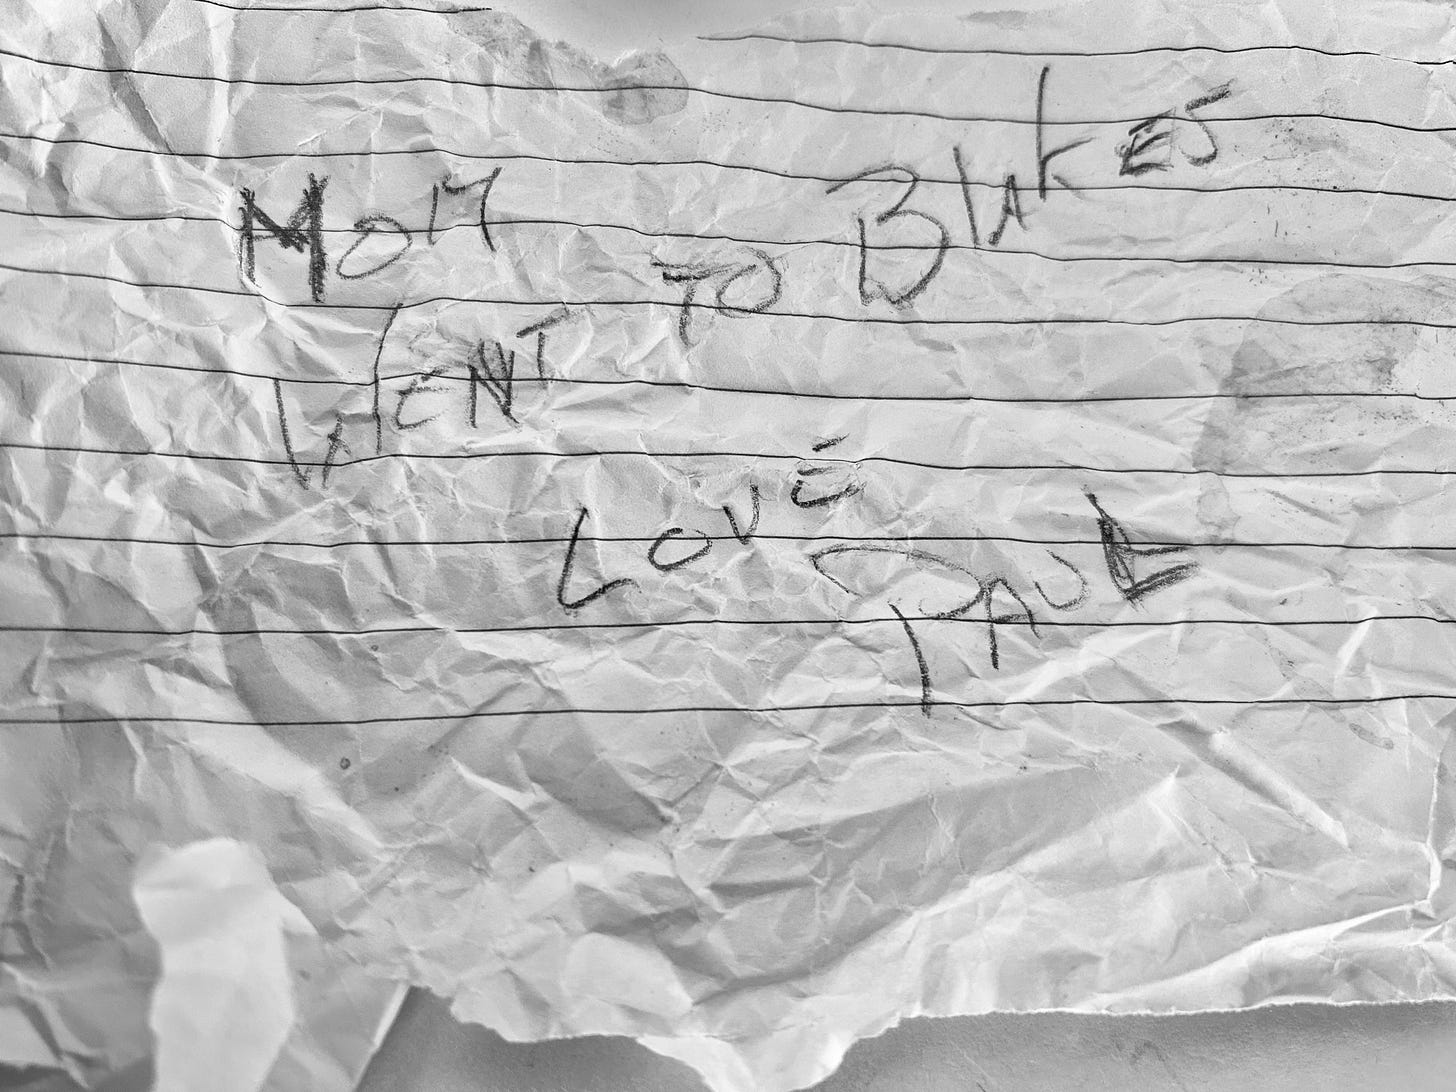 MOM
WENT TO BlAKES
LOVE
PAUL